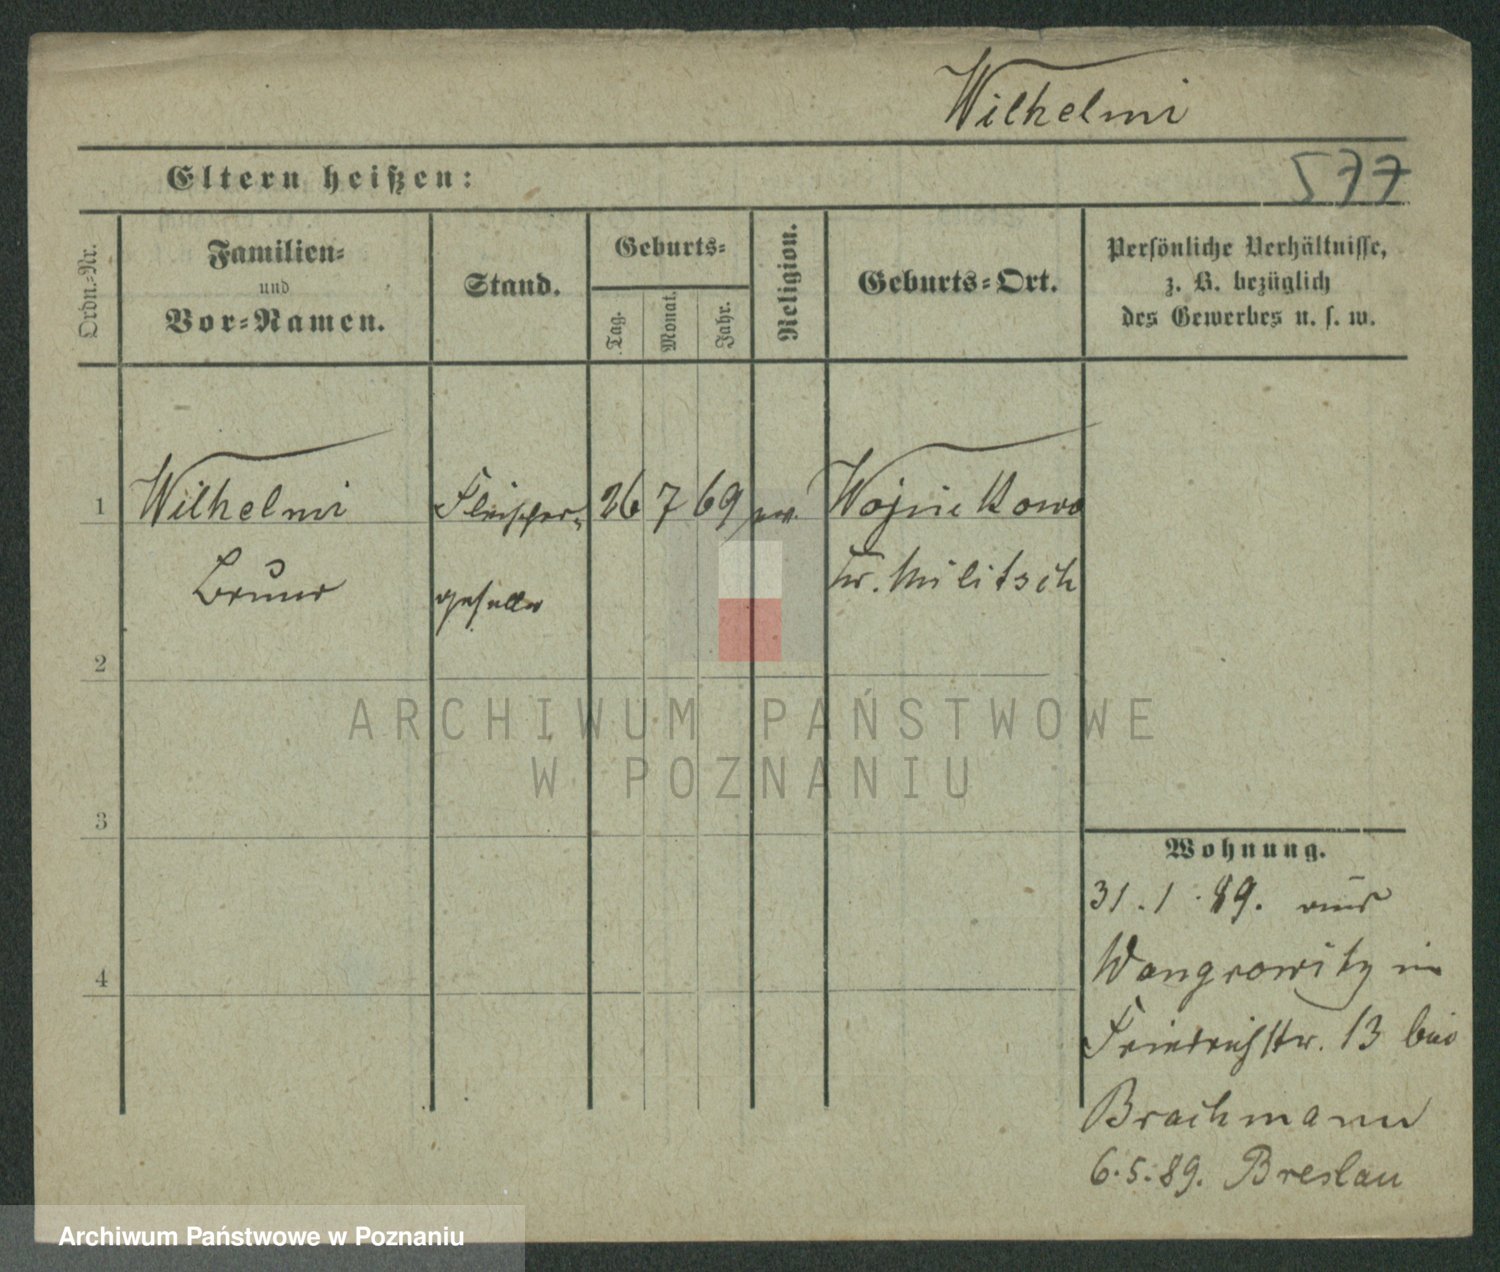 Wilhelmi
577
Eltern heißen:
Ordn.-Nr.
Familien-
und
Vor-Namen.
Stand.
Geburts-
Tag.
Monat.
Jahr.
Religion.
Geburts-Ort.
Persönliche Verhältnisse,
z. B. bezüglich
des Gewerbes u. s. w.
1 Wilhelmi Fleischer- 26 7 69 ev. Wojnickowo
Bruno geselle Kr. Militsch
2
3
4
Wohnung.
31.1.89. aus
Wongrowitz in
Friedrichstr. 13 bei
Brachmann
6.5.89. Breslau
ARCHIWUM PAŃSTWOWE
W POZNANIU
Archiwum Państwowe w Poznaniu